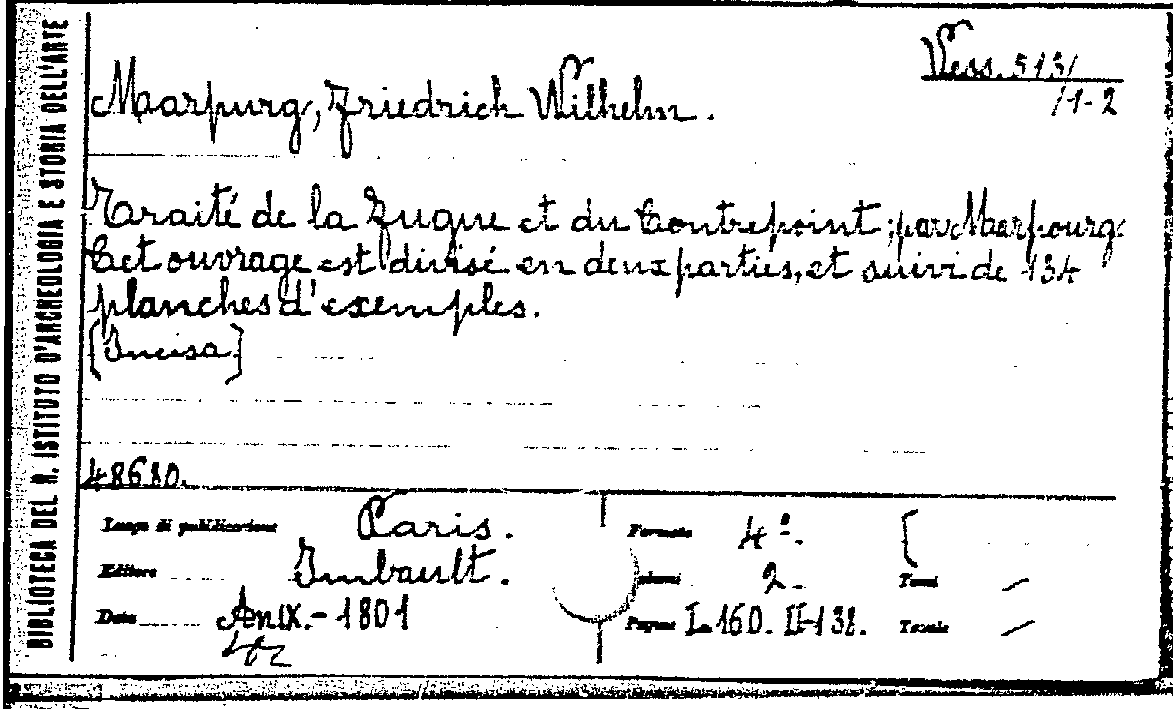 BIBLIOTECA DEL R. ISTITUTO D'ARCHEOLOGIA E STORIA DELL'ARTE
Vess. 513/
/1-2
Marpurg, Friedrich Wilhelm.
Traité de la Fugue et du Contrepoint; par Marpourg.
Cet ouvrage est divisé en deux parties, et suivi de 134
planches d'exemples.
[Incisa]
48680.
Luogo di pubblicazione Paris. Formato 4º.
Editore Imbault. Volumi 2. Tomi
Data An IX.- 1801 Pagine I-160. II-138. Tavole